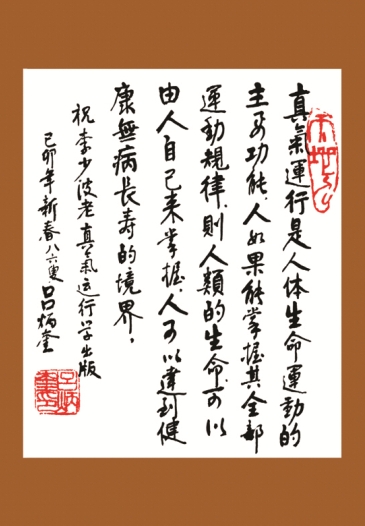 真氣運行是人体生命運動的
主要功能，人如果能掌握其全部
運動規律，則人類的生命可以
由人自已来掌握，人可以達到健
康無病長寿的境界，
祝李少波老真氣运行学出版
己卯年新春八六叟吕炳奎